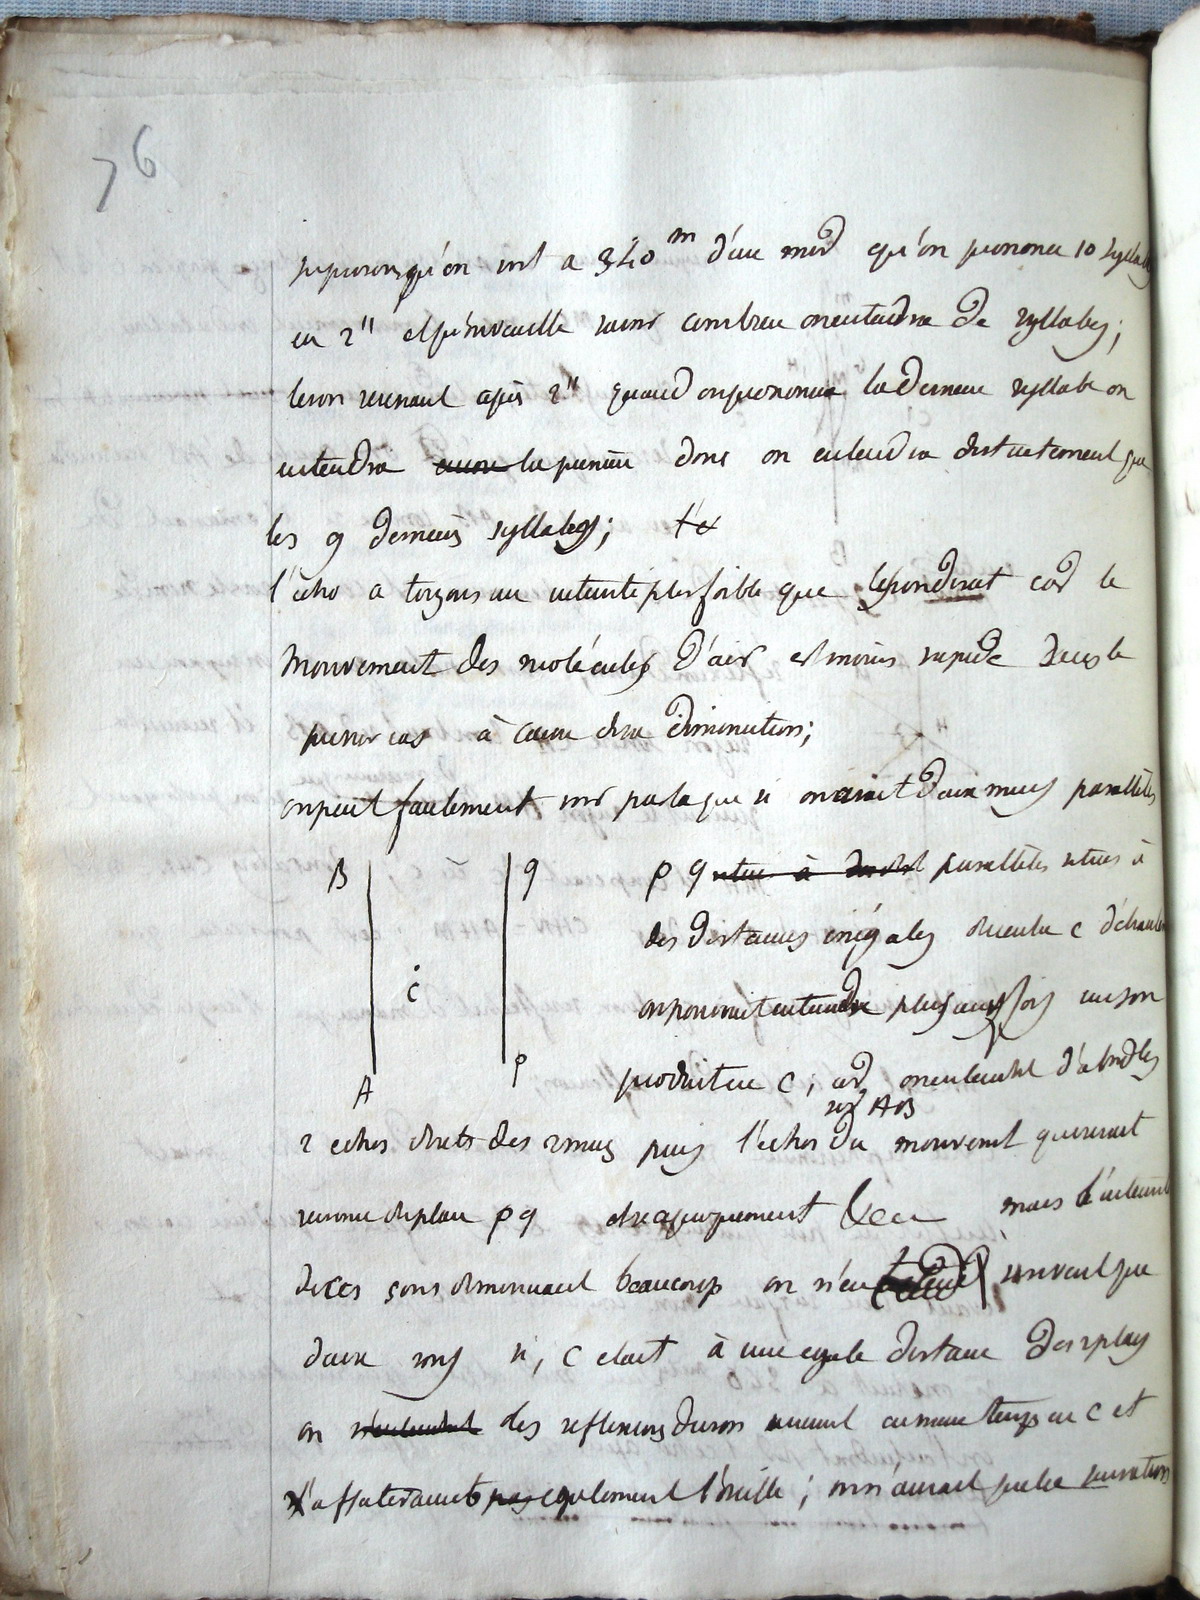 76
supposons qu'on soit a 340 m d'un mur qu'on prononce 10 syllab
en 2'' et qu'on veuille savoir combien on entendra de syllabes;
le son revenant après 2'' quand on prononcera la derniere syllabe on
entendra encore la première donc on entendra distinctement que
les 9 dernieres syllabes;
l'écho a toujours une intensité plus foible que le son direct car le
mouvement des molécules d'air est moins rapide dans le
premier cas à cause de sa diminution;
on peut facilement voir par la que si on avait deux murs parallèles
B q p q situés à parallèles situés à
des distances inégales du centre C d'ébranlem
C on pourrait entendre plusieurs fois un son
A p produit en C; car on entendrait d'abord les
sur AB
2 echos directs des 2 murs puis l'echo du mouvement qui serait
revenu du plan p q et réciproquement mais l'intensité
de ces sons diminuant beaucoup on n'en souvent que
deux sons si, C etait à une egale distance des 2 plans
on des reflexions du son en meme temps en C et
affecteraient pas egalement l'oreille; on n'aurait que la sensation